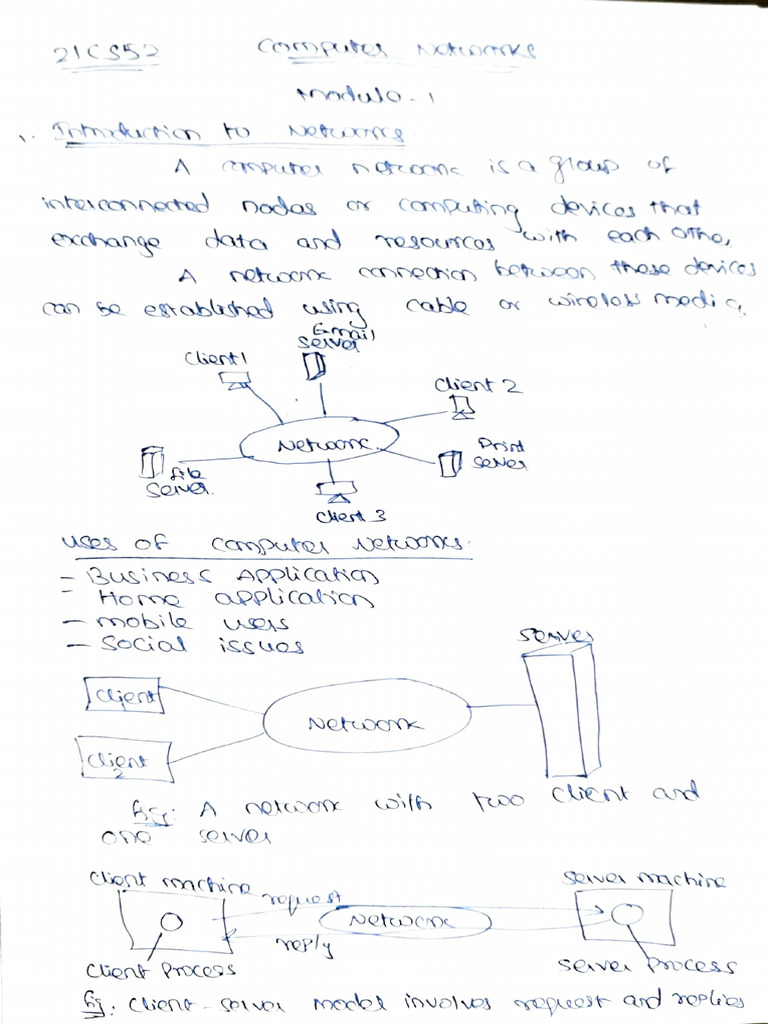 21CS52 Computer Networks
Module-1
1. Introduction to Networks
A computer network is a group of
interconnected nodes or computing devices that
exchange data and resources with each other,
A network connection between these devices
can be established using cable or wireless media,
Email
Server
Client 1
Client 2
Network
Print
server
file
server.
Client 3
Uses of computer Networks:
- Business Application
- Home application
- mobile users
- Social issues
Server
Client
Network
Client
2
fig: A network with two client and
one server
Client machine
request
Server machine
Network
reply
Client Process
Server Process
fig: Client-server model involves request and replies